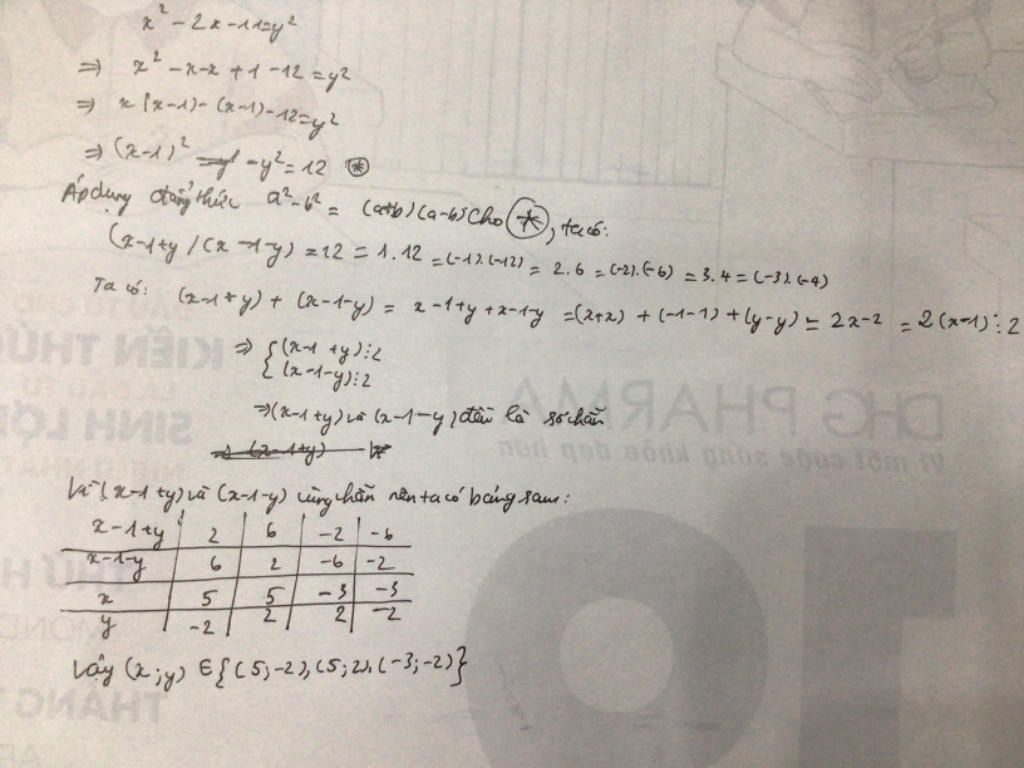 x² - 2x - 11 = y²
⇒ x² - x - x + 1 - 12 = y²
⇒ x(x-1) - (x-1) - 12 = y²
⇒ (x-1)² - y² = 12 (*)
Áp dụng đẳng thức a² - b² = (a+b)(a-b) cho (*), ta có:
(x-1+y)(x-1-y) = 12 = 1.12 = (-1).(-12) = 2.6 = (-2).(-6) = 3.4 = (-3).(-4)
Ta có: (x-1+y) + (x-1-y) = x-1+y+x-1-y = (x+x) + (-1-1) + (y-y) = 2x-2 = 2(x-1)⋮2
⇒ { (x-1+y)⋮2
(x-1-y)⋮2
⇒ (x-1+y) và (x-1-y) đều là số chẵn
Vì (x-1+y) và (x-1-y) cùng chẵn nên ta có bảng sau:
x-1+y | 2 | 6 | -2 | -6
x-1-y | 6 | 2 | -6 | -2
x | 5 | 5 | -3 | -3
y | -2 | 2 | 2 | -2
Vậy (x;y) ∈ {(5;-2),(5;2),(-3;-2)}
KIẾN THỨC
SINH LỢI
DHG PHARMA
Vì một cuộc sống khỏe đẹp hơn
THỨ H
MOND
THÁNG
19